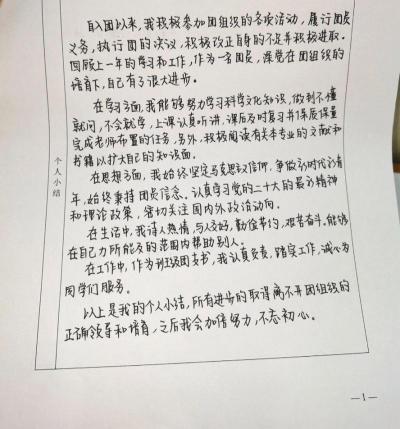 自入团以来,我积极参加团组织的各项活动,履行团员
义务,执行团的决议,积极改正自身的不足并积极进取。
回顾上一年的学习和工作,作为一名团员,深觉在团组织的
培育下,自己有了很大进步。
在学习方面,我能够努力学习科学文化知识,做到不懂
就问,不会就学,上课认真听讲,课后及时复习并保质保量
完成老师布置的任务,另外,积极阅读有关本专业的文献和
书籍以扩大自己的知识面。
在思想方面,我始终坚定马克思主义信仰,争做新时代好青
年,始终秉持团员信念。认真学习党的二十大的最新精神
和理论政策,密切关注国内外政治动向。
在生活中,我待人热情,与人友好,勤俭节约,艰苦奋斗,能够
在自己力所能及的范围内帮助别人。
在工作中,作为班级团支书,我认真负责,踏实工作,诚心为
同学们服务。
以上是我的个人小结,所有进步的取得离不开团组织的
正确领导和培育,之后我会加倍努力,不忘初心。
个人小结
—1—